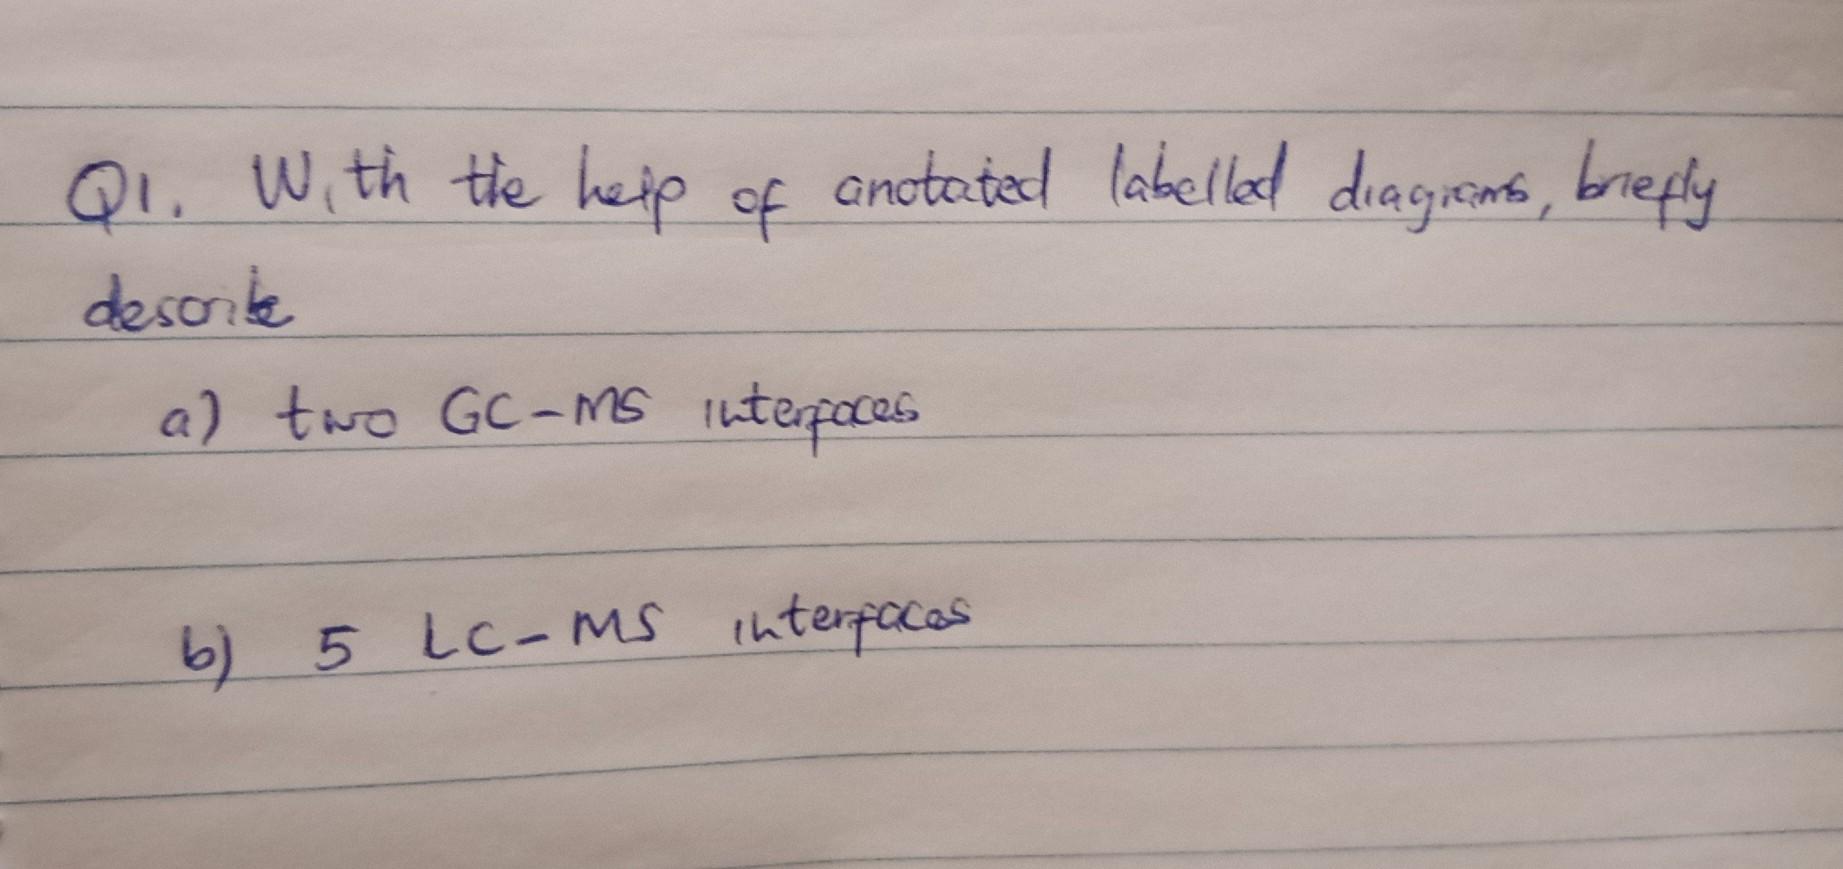 Q1. With the help of anotated labelled diagrams, briefly
describe
a) two GC-MS interfaces
b) 5 LC-MS interfaces